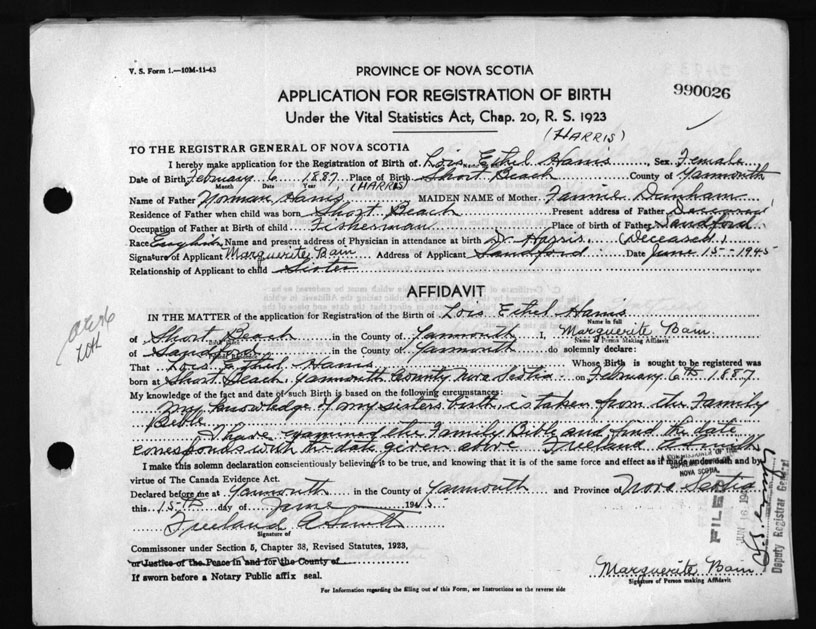 V. S. Form 1.—10M-11-43
PROVINCE OF NOVA SCOTIA
990026
APPLICATION FOR REGISTRATION OF BIRTH
Under the Vital Statistics Act, Chap. 20, R. S. 1923
(HARRIS)
TO THE REGISTRAR GENERAL OF NOVA SCOTIA
I hereby make application for the Registration of Birth of Lois Ethel Harris, Sex Female
Date of Birth February 6 1887 Place of Birth Short Beach County of Yarmouth
Month Date Year (HARRIS)
Name of Father Norman Harris MAIDEN NAME of Mother Fannie Denham
Residence of Father when child was born Short Beach Present address of Father Deceased
Occupation of Father at Birth of child Fisherman Place of birth of Father Sandford
Race English Name and present address of Physician in attendance at birth Dr. Harris (Deceased)
Signature of Applicant Marguerite Bain Address of Applicant Sandford Date June 15-1945
Relationship of Applicant to child Sister
AFFIDAVIT
IN THE MATTER of the application for Registration of the Birth of Lois Ethel Harris
Name in full
of Short Beach in the County of Yarmouth I, Marguerite Bain
Name of Person Making Affidavit
of Sandford in the County of Yarmouth do solemnly declare:
That Lois Ethel Harris Whose Birth is sought to be registered was
born at Short Beach, Yarmouth County Nova Scotia on February 6th 1887
My knowledge of the fact and date of such Birth is based on the following circumstances:
My knowledge of my sisters birth, is taken from the Family
Bible.
I have examined the Family Bible and find the date
corresponds with the date given above Freeland A Smith
I make this solemn declaration conscientiously believing it to be true, and knowing that it is of the same force and effect as if made under oath and by
virtue of The Canada Evidence Act.
Declared before me at Yarmouth in the County of Yarmouth and Province of Nova Scotia
this 15th day of June 1945
Freeland A Smith
Signature of
Commissioner under Section 5, Chapter 38, Revised Statutes, 1923,
or Justice of the Peace in and for the County of
If sworn before a Notary Public affix seal.
Marguerite Bain
Signature of Person making Affidavit
For Information regarding the filling out of this Form, see Instructions on the reverse side
NOVA SCOTIA
FILED
JUN 16 19
Deputy Registrar General